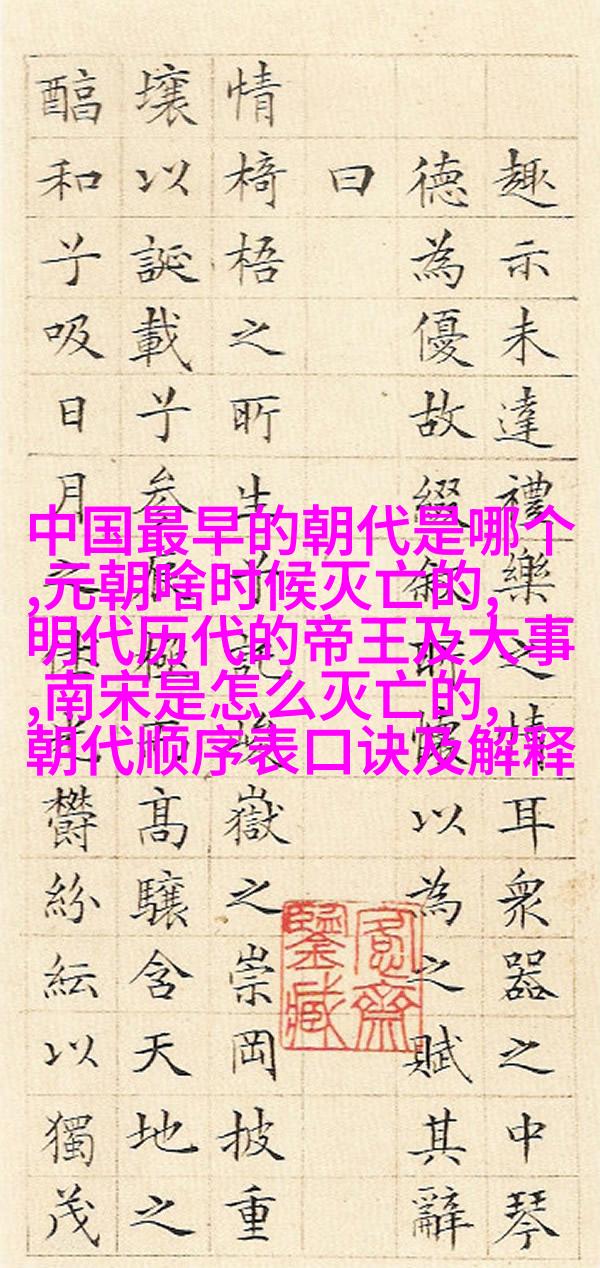 趣示未達禮樂之情耳衆器之中琴
德為優故綴叙所懷以為之賦其辭
曰
情椅梧之所生兮託峻嶽之崇岡披重
壤以誕載兮参辰極而高驤含天地之
醕和兮吸日月之休光鬱紛紜以獨茂
愙齋鑒藏
中国最早的朝代是哪个
,元朝啥时候灭亡的,
明代历代的帝王及大事
,南宋是怎么灭亡的,
朝代顺序表口诀及解释